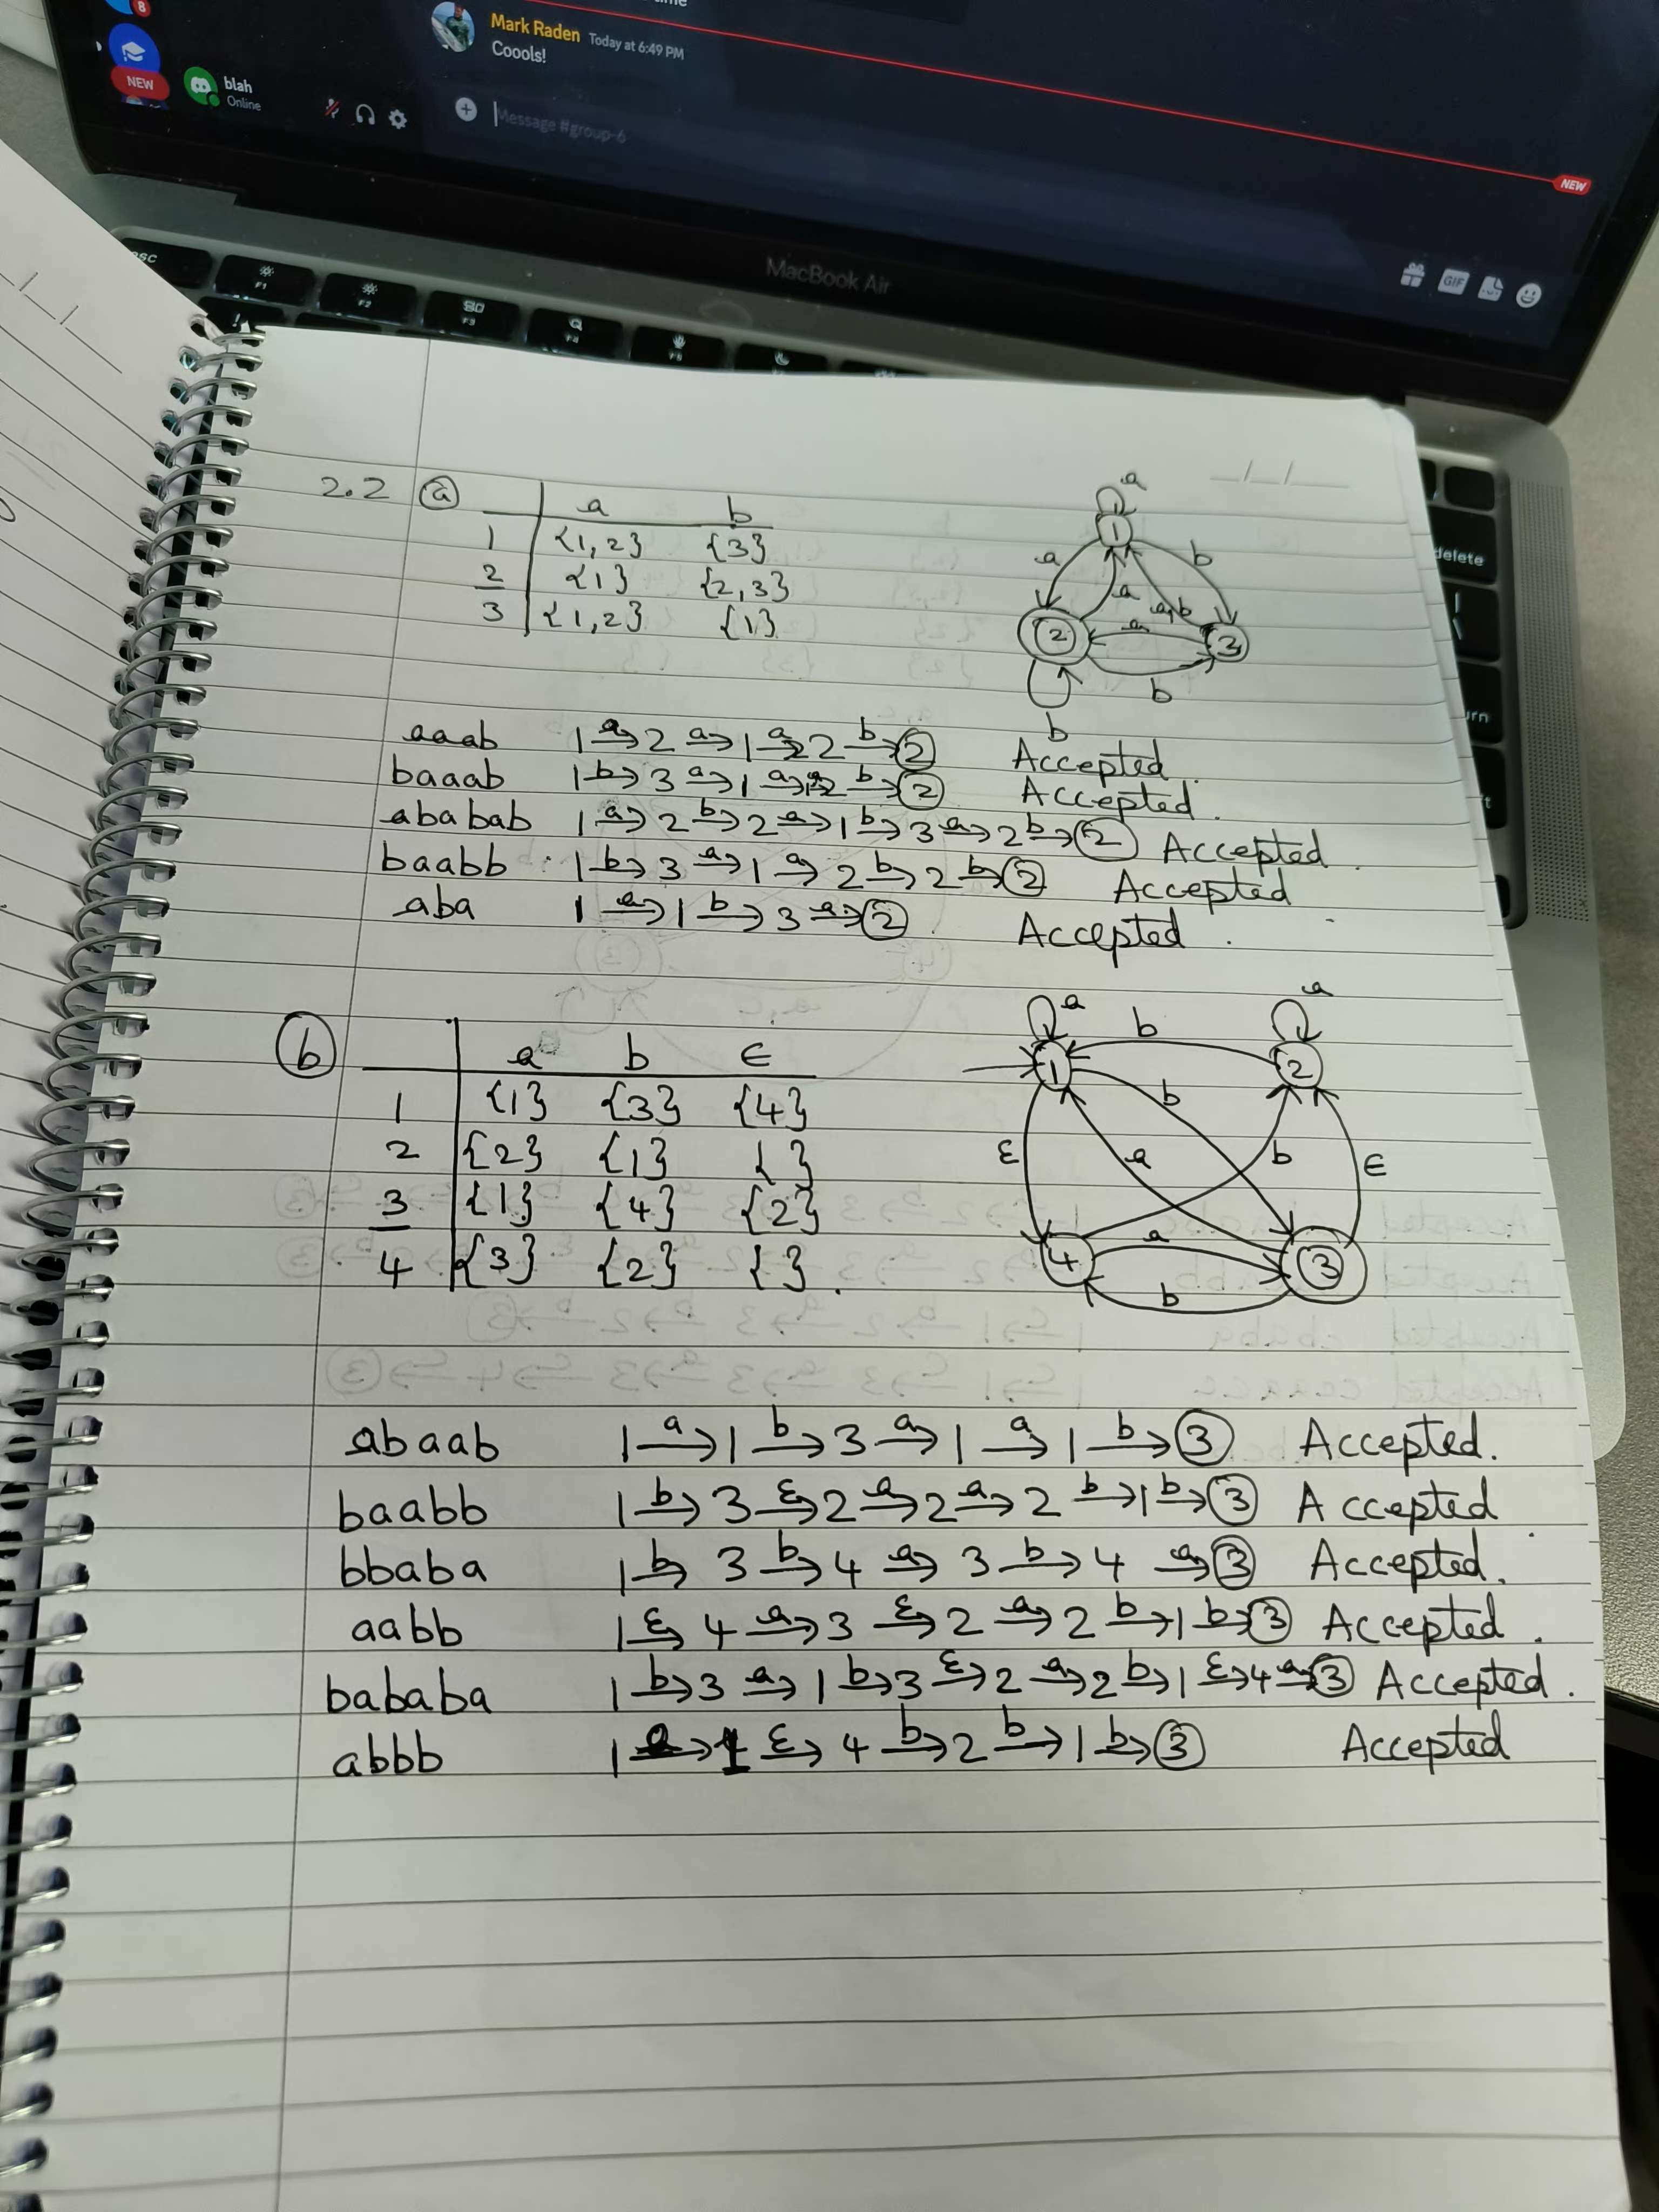 8
NEW
blah
Online
Mark Raden Today at 6:49 PM
Coools!
Message #group-6
NEW
GIF
MacBook Air
esc
F1
F2
F3
F4
F5
delete
__/__/__
2.2 ⓐ
a b
1 {1,2} {3}
2 {1} {2,3}
3 {1,2} {1}
a
1
a b
a a,b
2 a 3
b
b
aaab 1 a→ 2 a→ 1 a→ 2 b→ ② Accepted.
baaab 1 b→ 3 a→ 1 a→ 2 b→ ② Accepted.
ababab 1 a→ 2 b→ 2 a→ 1 b→ 3 a→ 2 b→ ② Accepted.
baabb 1 b→ 3 a→ 1 a→ 2 b→ 2 b→ ② Accepted
aba 1 a→ 1 b→ 3 a→ ② Accepted.
ⓑ
a b ϵ
1 {1} {3} {4}
2 {2} {1} { }
3 {1} {4} {2}
4 {3} {2} { }.
a a
b
1 2
b
ε a b ϵ
a
4 3
b
abaab 1 a→ 1 b→ 3 a→ 1 a→ 1 b→ ③ Accepted.
baabb 1 b→ 3 ε→ 2 a→ 2 a→ 2 b→ 1 b→ ③ Accepted.
bbaba 1 b→ 3 b→ 4 a→ 3 b→ 4 a→ ③ Accepted.
aabb 1 ε→ 4 a→ 3 ε→ 2 a→ 2 b→ 1 b→ ③ Accepted.
bababa 1 b→ 3 a→ 1 b→ 3 ε→ 2 a→ 2 b→ 1 ε→ 4 a→ ③ Accepted.
abbb 1 a→ 1 ε→ 4 b→ 2 b→ 1 b→ ③ Accepted